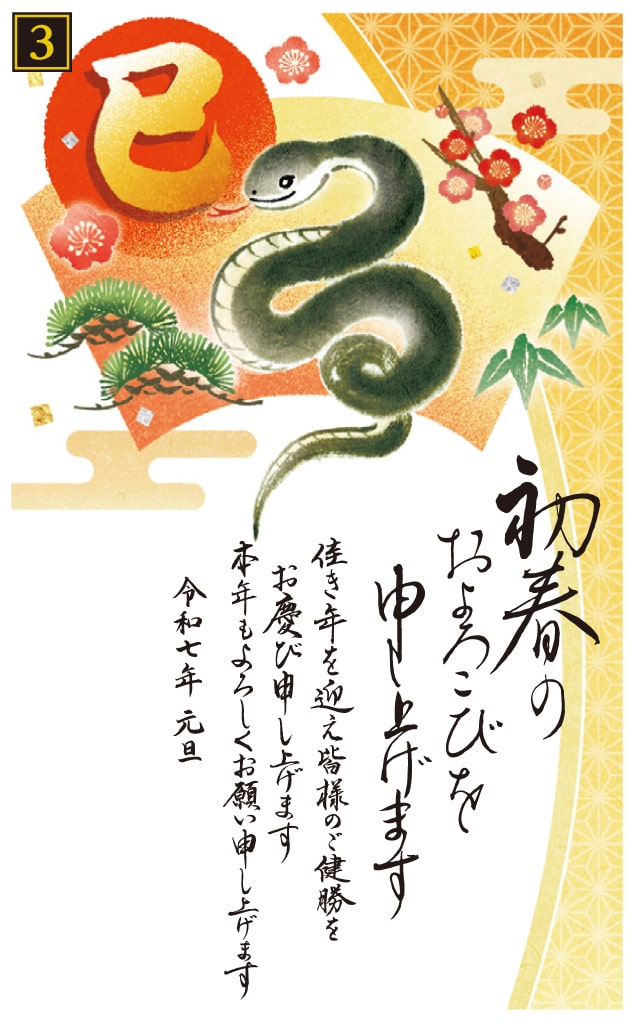 3
巳
初春の
およろこびを
申し上げます
佳き年を迎え皆様のご健勝を
お慶び申し上げます
本年もよろしくお願い申し上げます
令和七年 元旦